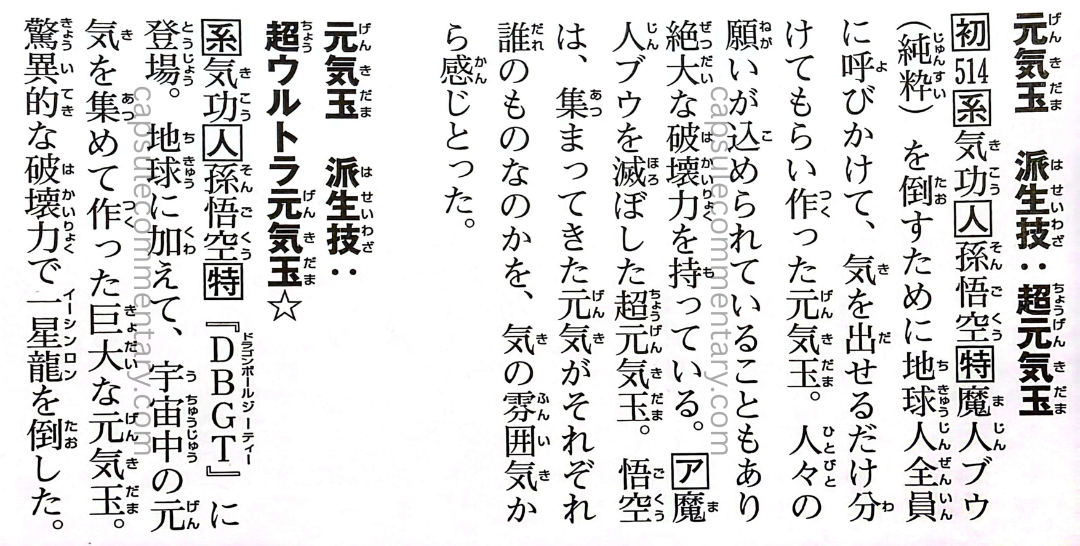 元気玉　派生技：超元気玉
初514系気功人孫悟空特魔人ブウ
（純粋）を倒すために地球人全員
に呼びかけて、気を出せるだけ分
けてもらい作った元気玉。人々の
願いが込められていることもあり
絶大な破壊力を持っている。ア魔
人ブウを滅ぼした超元気玉。悟空
は、集まってきた元気がそれぞれ
誰のものなのかを、気の雰囲気か
ら感じとった。
元気玉　派生技：
超ウルトラ元気玉☆
系気功人孫悟空特『DBGT』に
登場。地球に加えて、宇宙中の元
気を集めて作った巨大な元気玉。
驚異的な破壊力で一星龍を倒した。
capsulecommentary.com
capsulecommentary.com